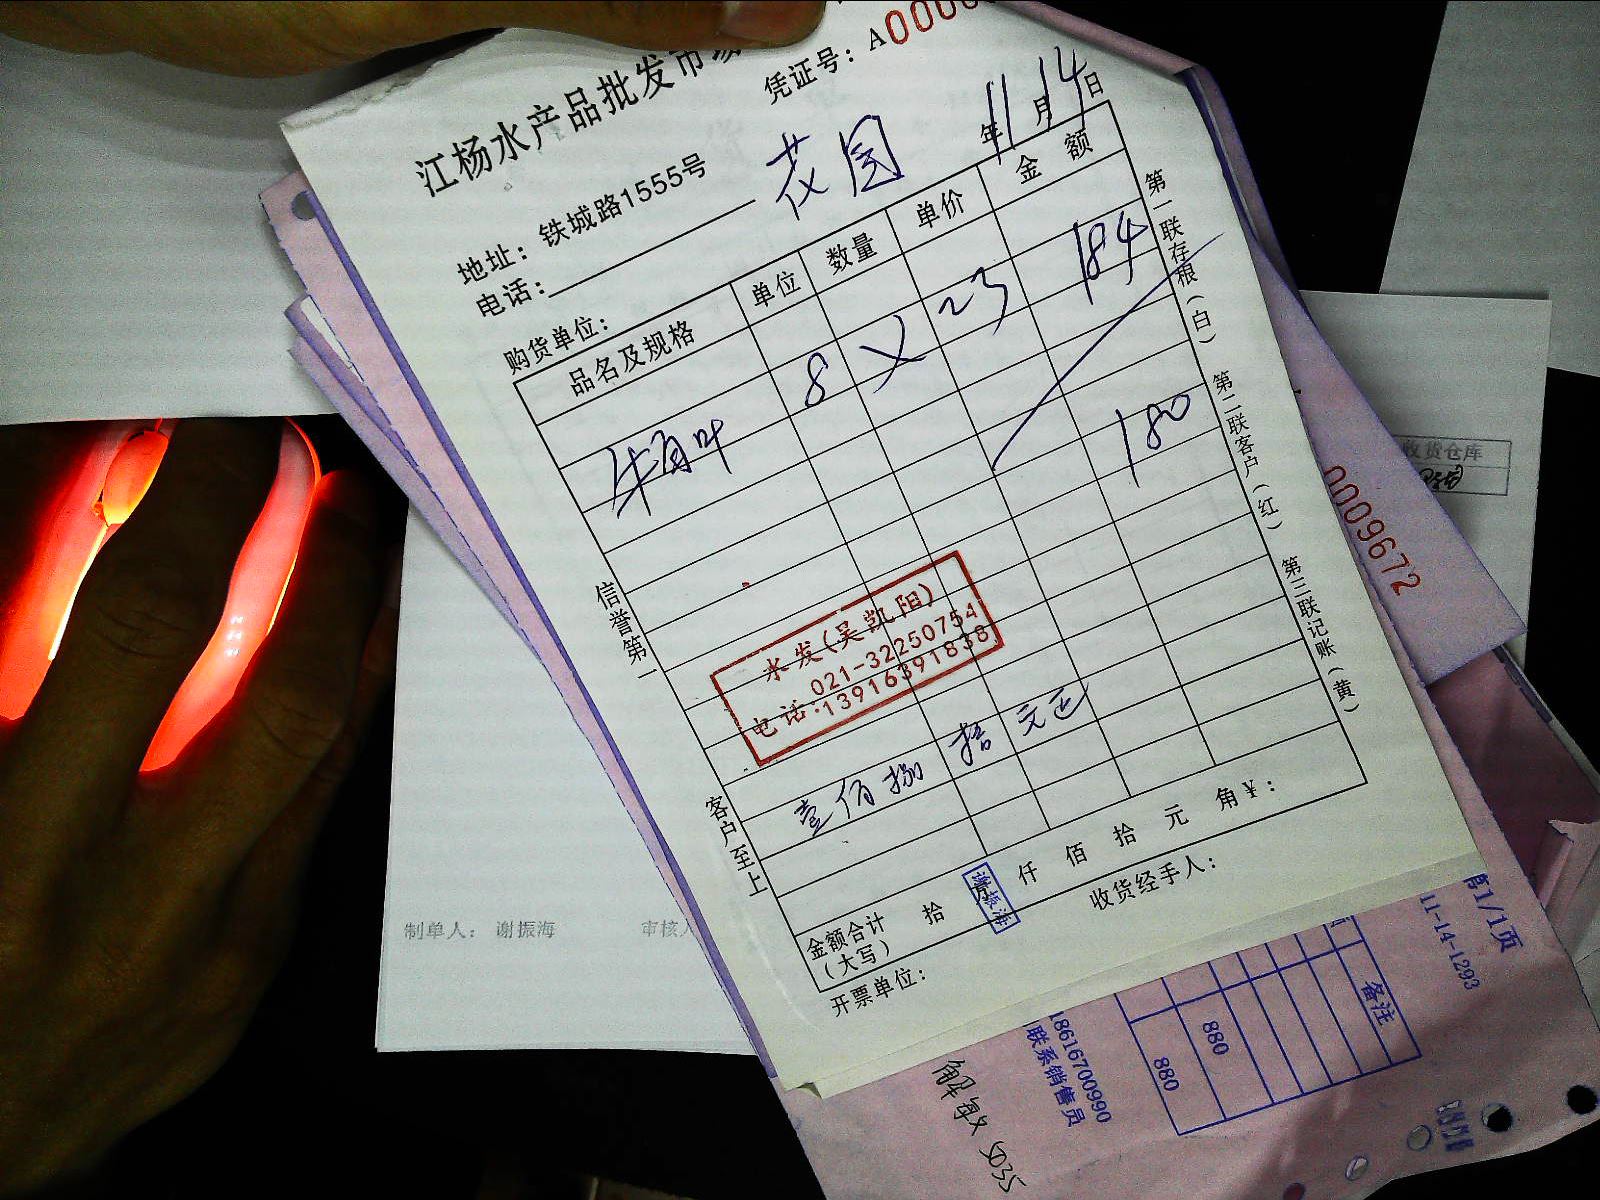 江杨水产品批发市场
凭证号：A0000
地址：铁城路1555号
电话：
花园
年11月14日
购货单位：
品名及规格 单位 数量 单价 金额
牛百叶 8 X 23 184
180
信誉第一
客户至上
第一联存根（白）
第二联客户（红）
第三联记账（黄）
水发（吴凯阳）
021-32250754
电话：13916391838
壹佰捌拾元正
金额合计（大写） 拾 仟 佰 拾 元 角 ¥：
谢振海
开票单位：
收货经手人：
0009672
收货仓库
制单人： 谢振海
审核人
第1/1页
11-14-1293
备注
880
880
18616700990
联系销售员
解敏